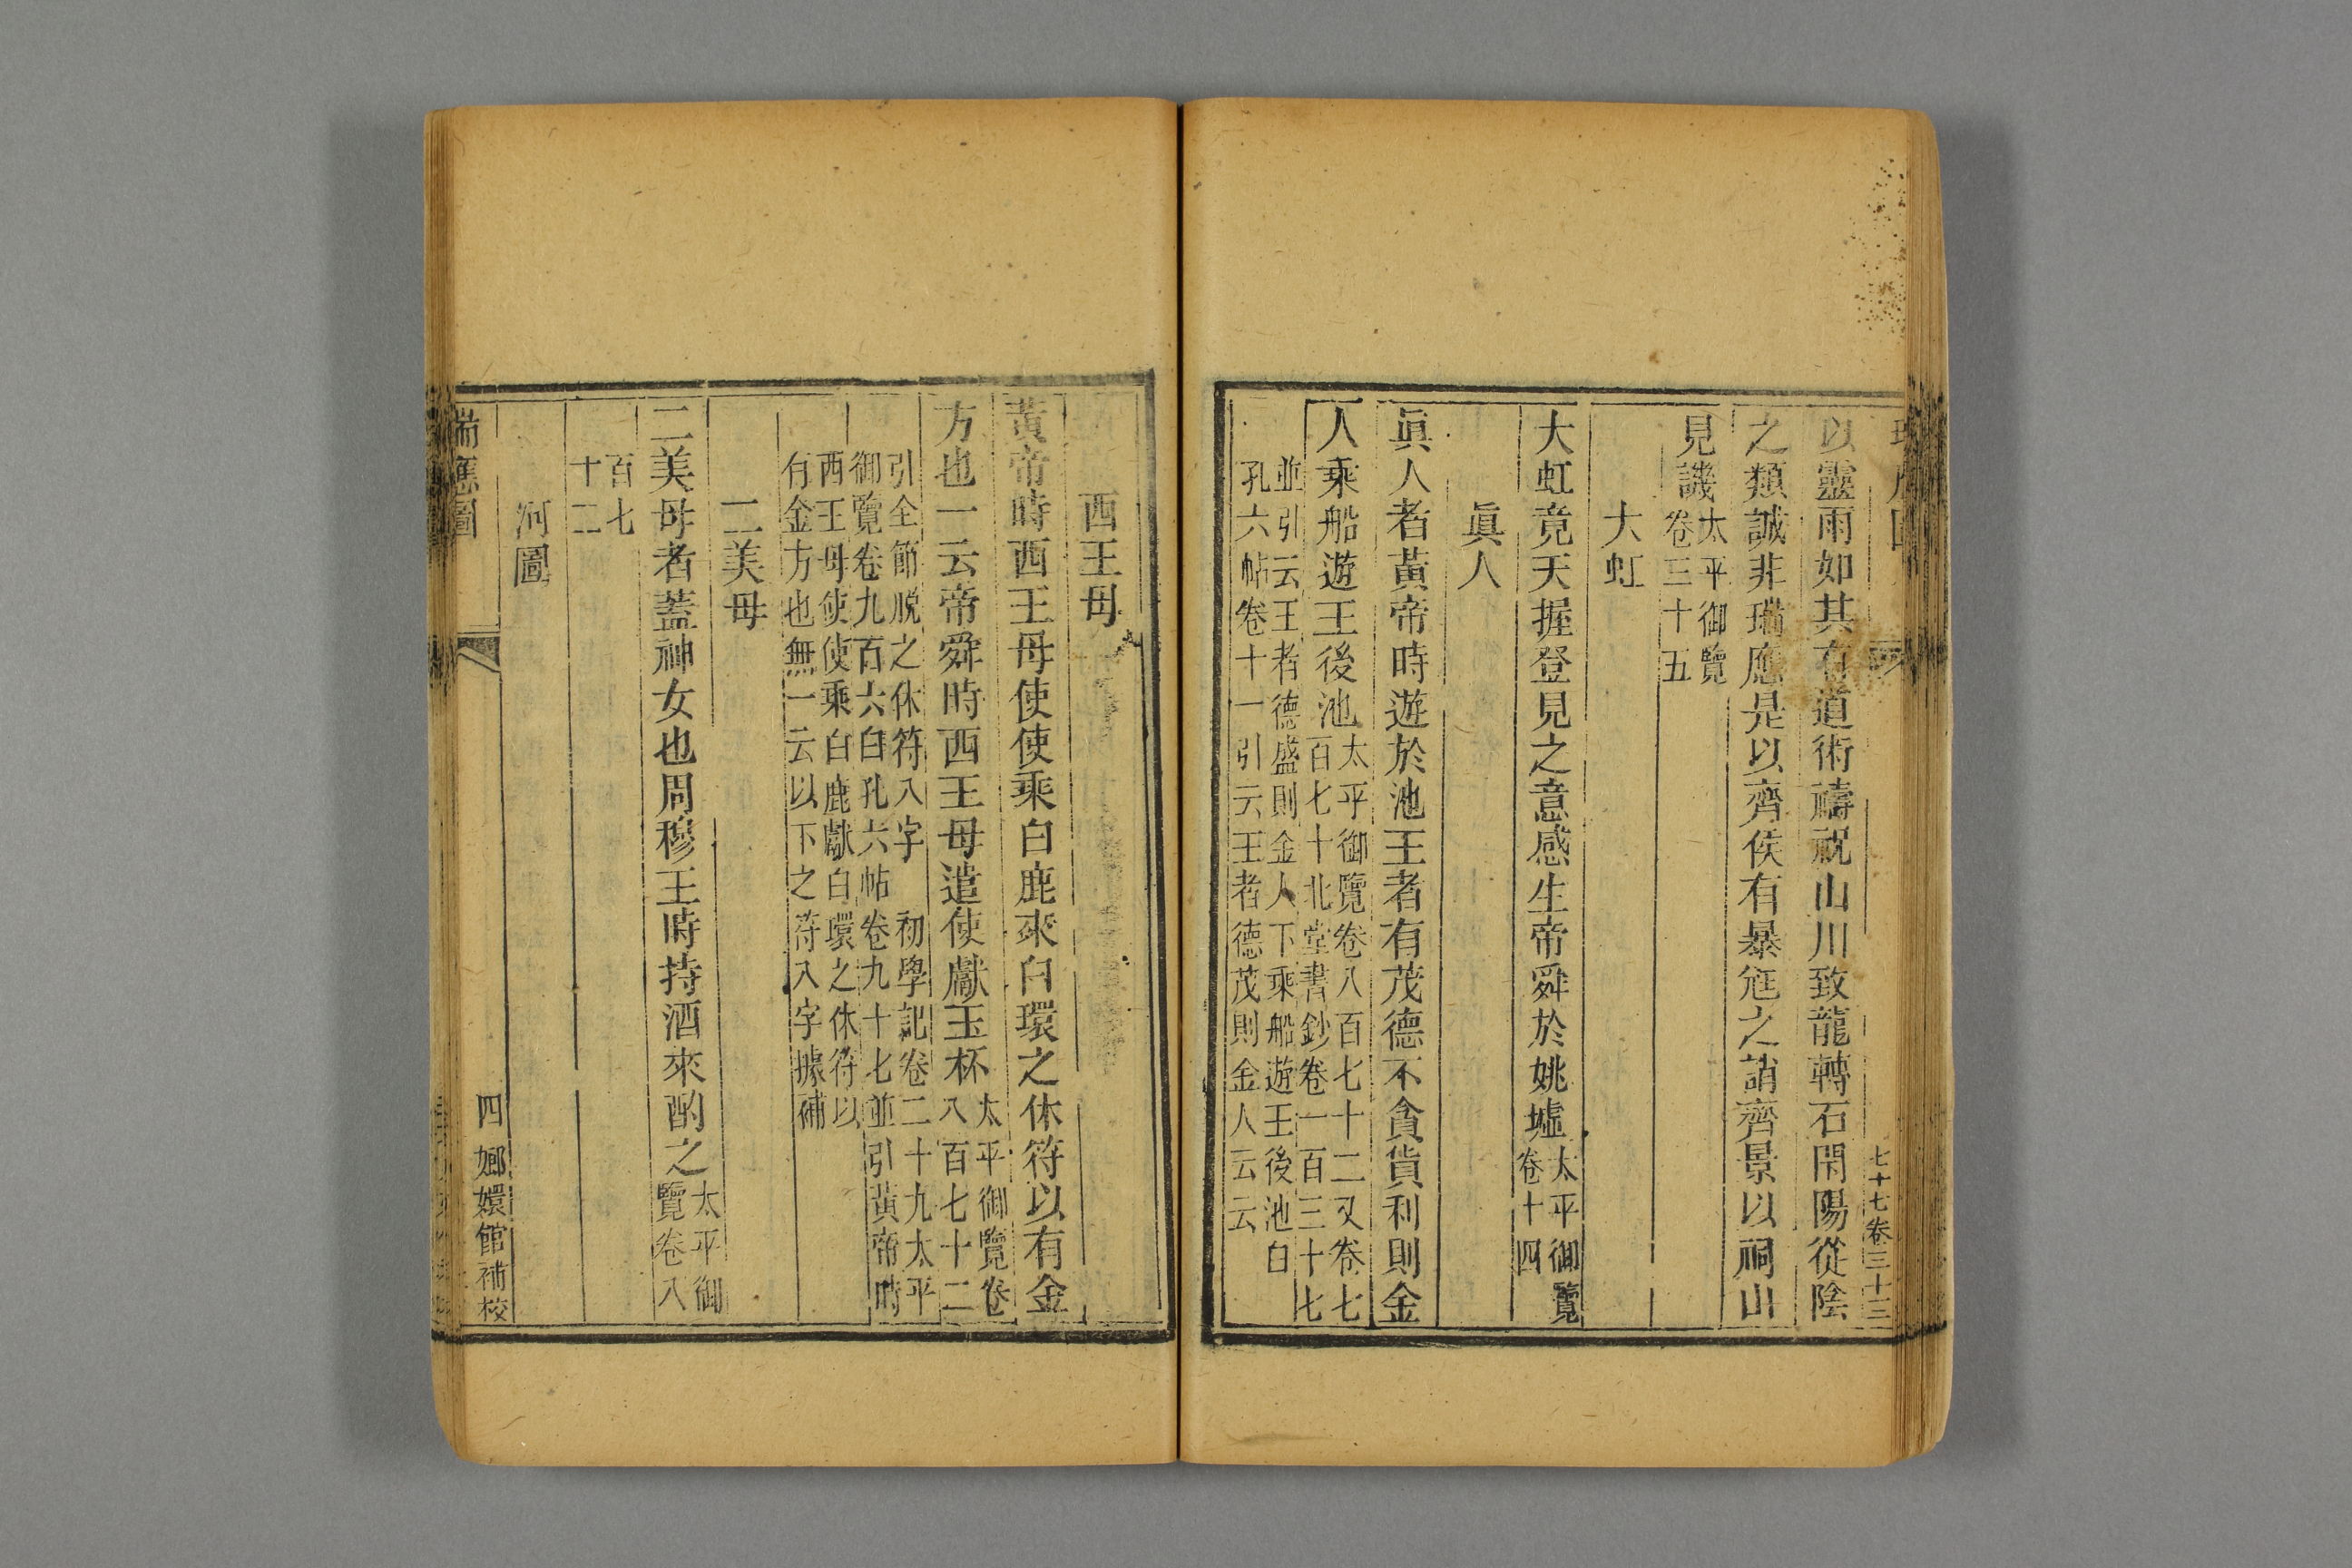 七十七卷三十三
以靈雨如其有道術禱祝山川致龍轉石閉陽從陰
之類誠非瑞應是以齊侯有暴尫之誚齊景以祠山
見譏太平御覽卷三十五
大虹
大虹竟天握登見之意感生帝舜於姚墟太平御覽卷十四
眞人
眞人者黃帝時遊於池王者有茂德不貪貨利則金
人乘船遊王後池太平御覽卷八百七十二又卷七百七十北堂書鈔卷一百三十七
並引云王者德盛則金人下乘船遊王後池白孔六帖卷十一引云王者德茂則金人云云
西王母
黃帝時西王母使使乘白鹿來白環之休符以有金
方也一云帝舜時西王母遣使獻玉杯太平御覽卷八百七十二
引全節脫之休符八字 初學記卷二十九太平御覽卷九百六白孔六帖卷九十七並引黃帝時
西王母使使乘白鹿獻白環之休符以有金方也無一云以下之符入字據補
二美母
二美母者蓋神女也周穆王時持酒來酌之太平御覽卷八
百七十二
河圖
瑞應圖
四 嫏嬛館補校